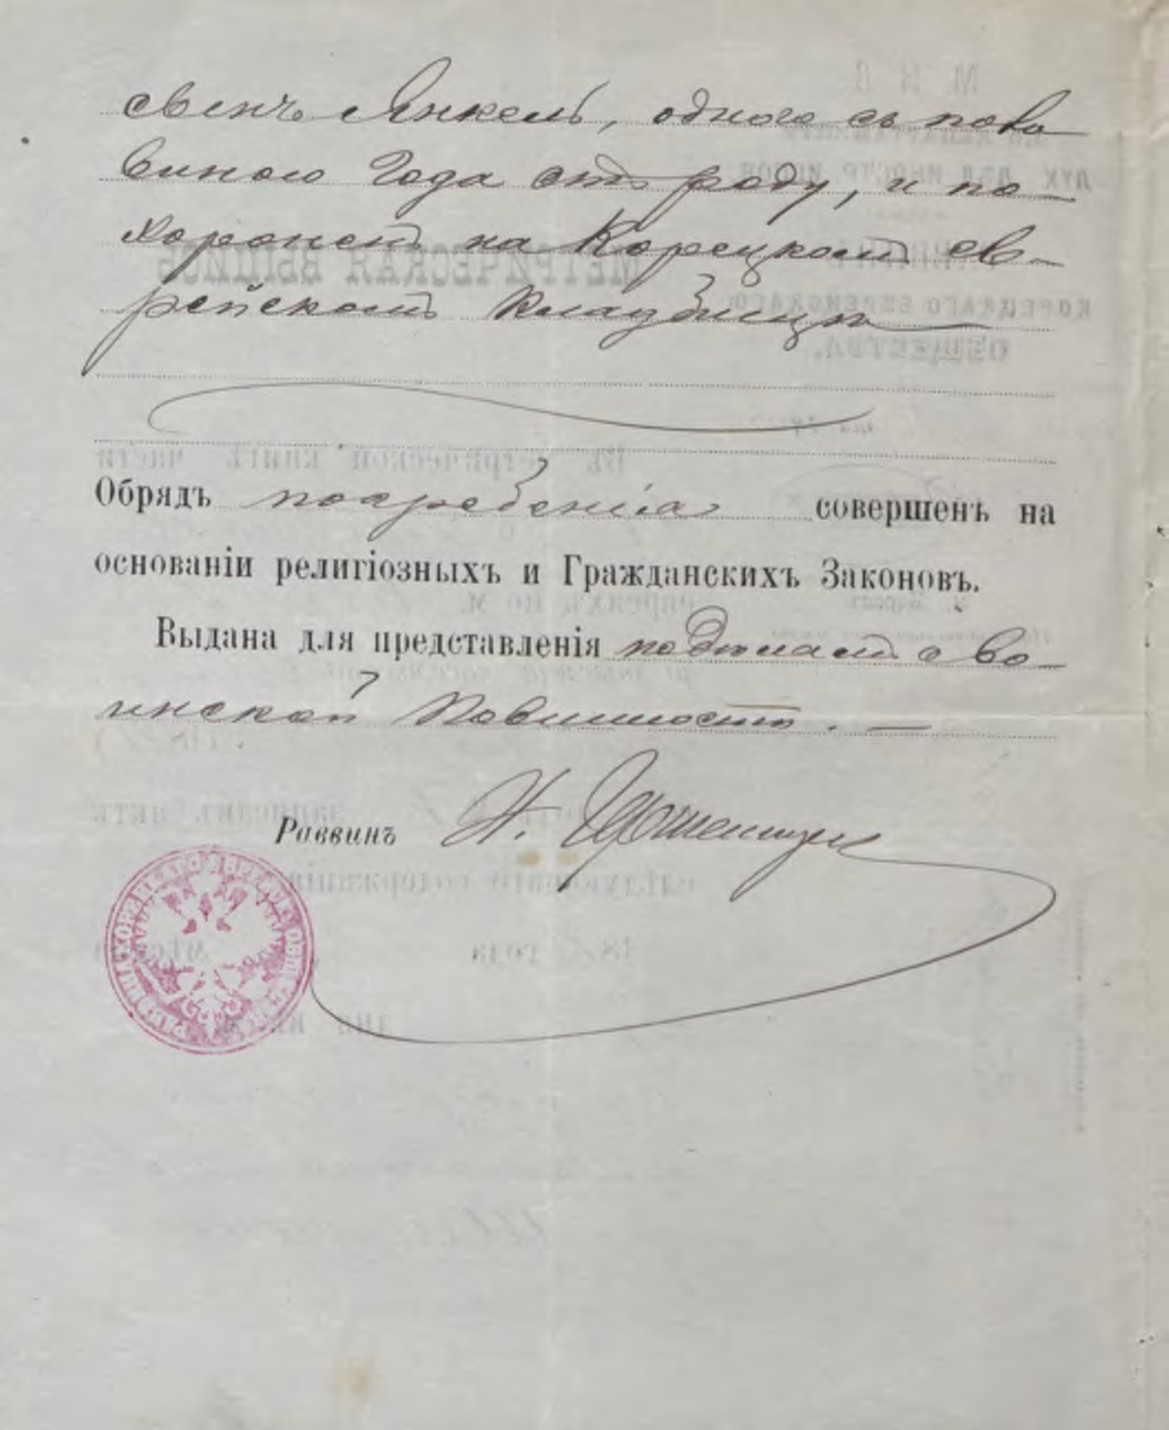 сынъ Янкель, одного съ поло
виною Года отъ роду, и по-
хороненъ на Корецкомъ ев-
рейскомъ Кладбищѣ
Обрядъ погребенія совершенъ на
основаніи религіозныхъ и Гражданскихъ Законовъ.
Выдана для представленія по дѣламъ о во-
инской Повинности. —
Раввинъ